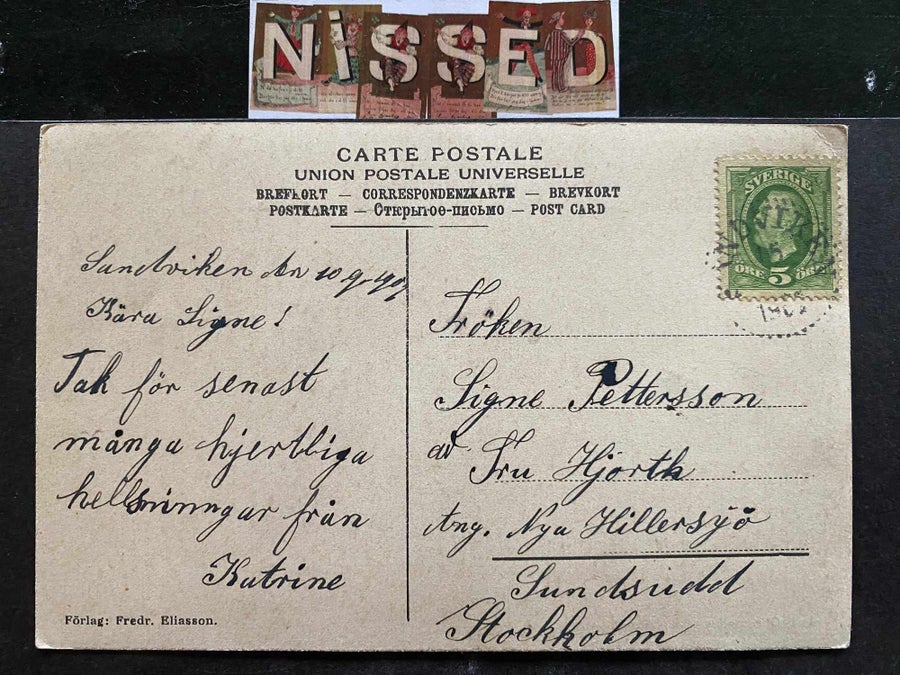 NiSSED
CARTE POSTALE
UNION POSTALE UNIVERSELLE
BREFKORT — CORRESPONDENZKARTE — BREVKORT
POSTKARTE — Открытое-письмо — POST CARD
SVERIGE
ÖRE 5 ÖRE
Sandviken den 10 9 -907
Kära Signe!
Tak för senast
många hjertliga
hellsninngar från
Katrine
Förlag: Fredr. Eliasson.
Fröken
Signe Pettersson
ad. Fru Hjorth
Ang. Nya Hillersjö
Sundsudd
Stockholm